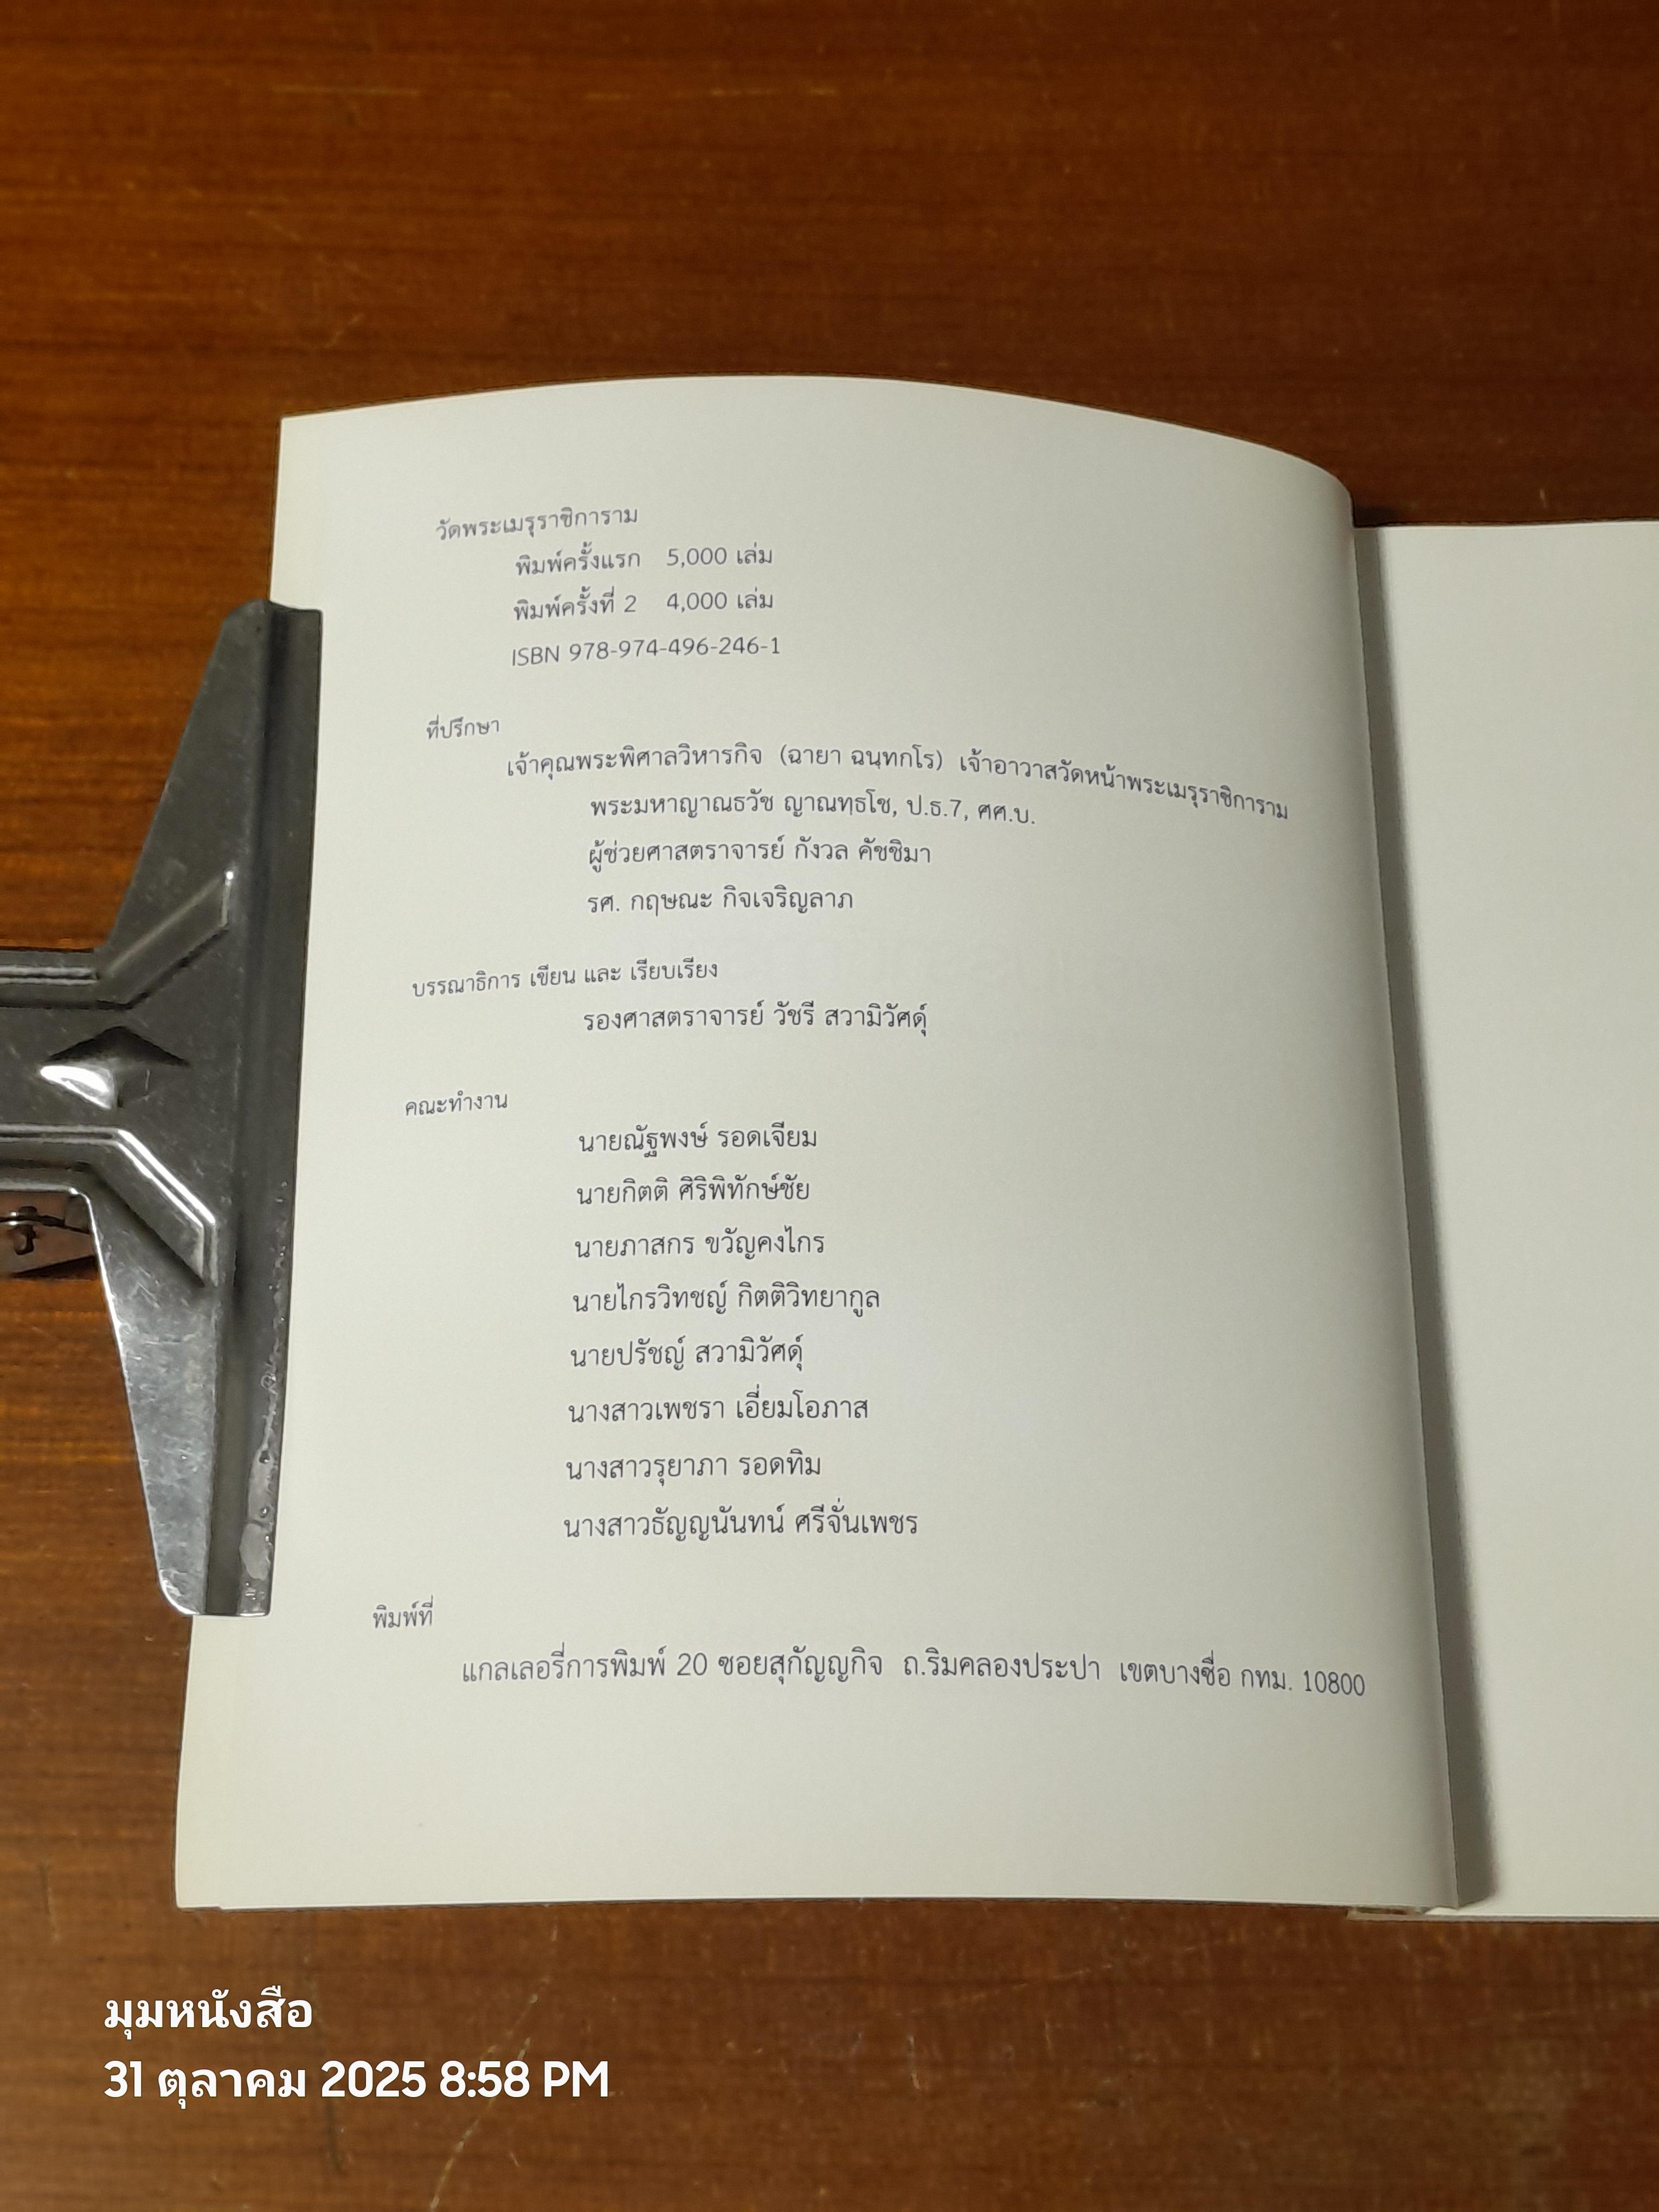 วัดพระเมรุราชิการาม
พิมพ์ครั้งแรก 5,000 เล่ม
พิมพ์ครั้งที่ 2 4,000 เล่ม
ISBN 978-974-496-246-1
ที่ปรึกษา
เจ้าคุณพระพิศาลวิหารกิจ (ฉายา ฉนฺทกโร) เจ้าอาวาสวัดหน้าพระเมรุราชิการาม
พระมหาญาณธวัช ญาณทฺธโช, ป.ธ.7, ศศ.บ.
ผู้ช่วยศาสตราจารย์ กังวล คัชชิมา
รศ. กฤษณะ กิจเจริญลาภ
บรรณาธิการ เขียน และ เรียบเรียง
รองศาสตราจารย์ วัชรี สวามิวัศดุ์
คณะทำงาน
นายณัฐพงษ์ รอดเจียม
นายกิตติ ศิริพิทักษ์ชัย
นายภาสกร ขวัญคงไกร
นายไกรวิทชญ์ กิตติวิทยากูล
นายปรัชญ์ สวามิวัศดุ์
นางสาวเพชรา เอี่ยมโอภาส
นางสาวรุยาภา รอดทิม
นางสาวธัญญนันทน์ ศรีจั่นเพชร
พิมพ์ที่
แกลเลอรี่การพิมพ์ 20 ซอยสุกัญญกิจ ถ.ริมคลองประปา เขตบางซื่อ กทม. 10800
มุมหนังสือ
31 ตุลาคม 2025 8:58 PM